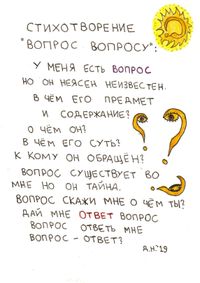 СТИХОТВОРЕНИЕ
"ВОПРОС ВОПРОСУ":
У МЕНЯ ЕСТЬ ВОПРОС
НО ОН НЕЯСЕН НЕИЗВЕСТЕН.
В ЧЁМ ЕГО ПРЕДМЕТ
И СОДЕРЖАНИЕ?
О ЧЁМ ОН?
В ЧЁМ ЕГО СУТЬ?
К КОМУ ОН ОБРАЩЁН?
ВОПРОС СУЩЕСТВУЕТ ВО
МНЕ НО ОН ТАЙНА.
ВОПРОС СКАЖИ МНЕ О ЧЁМ ТЫ?
ДАЙ МНЕ ОТВЕТ ВОПРОС
ВОПРОС ОТВЕТЬ МНЕ
ВОПРОС - ОТВЕТ?
А.Н.'19